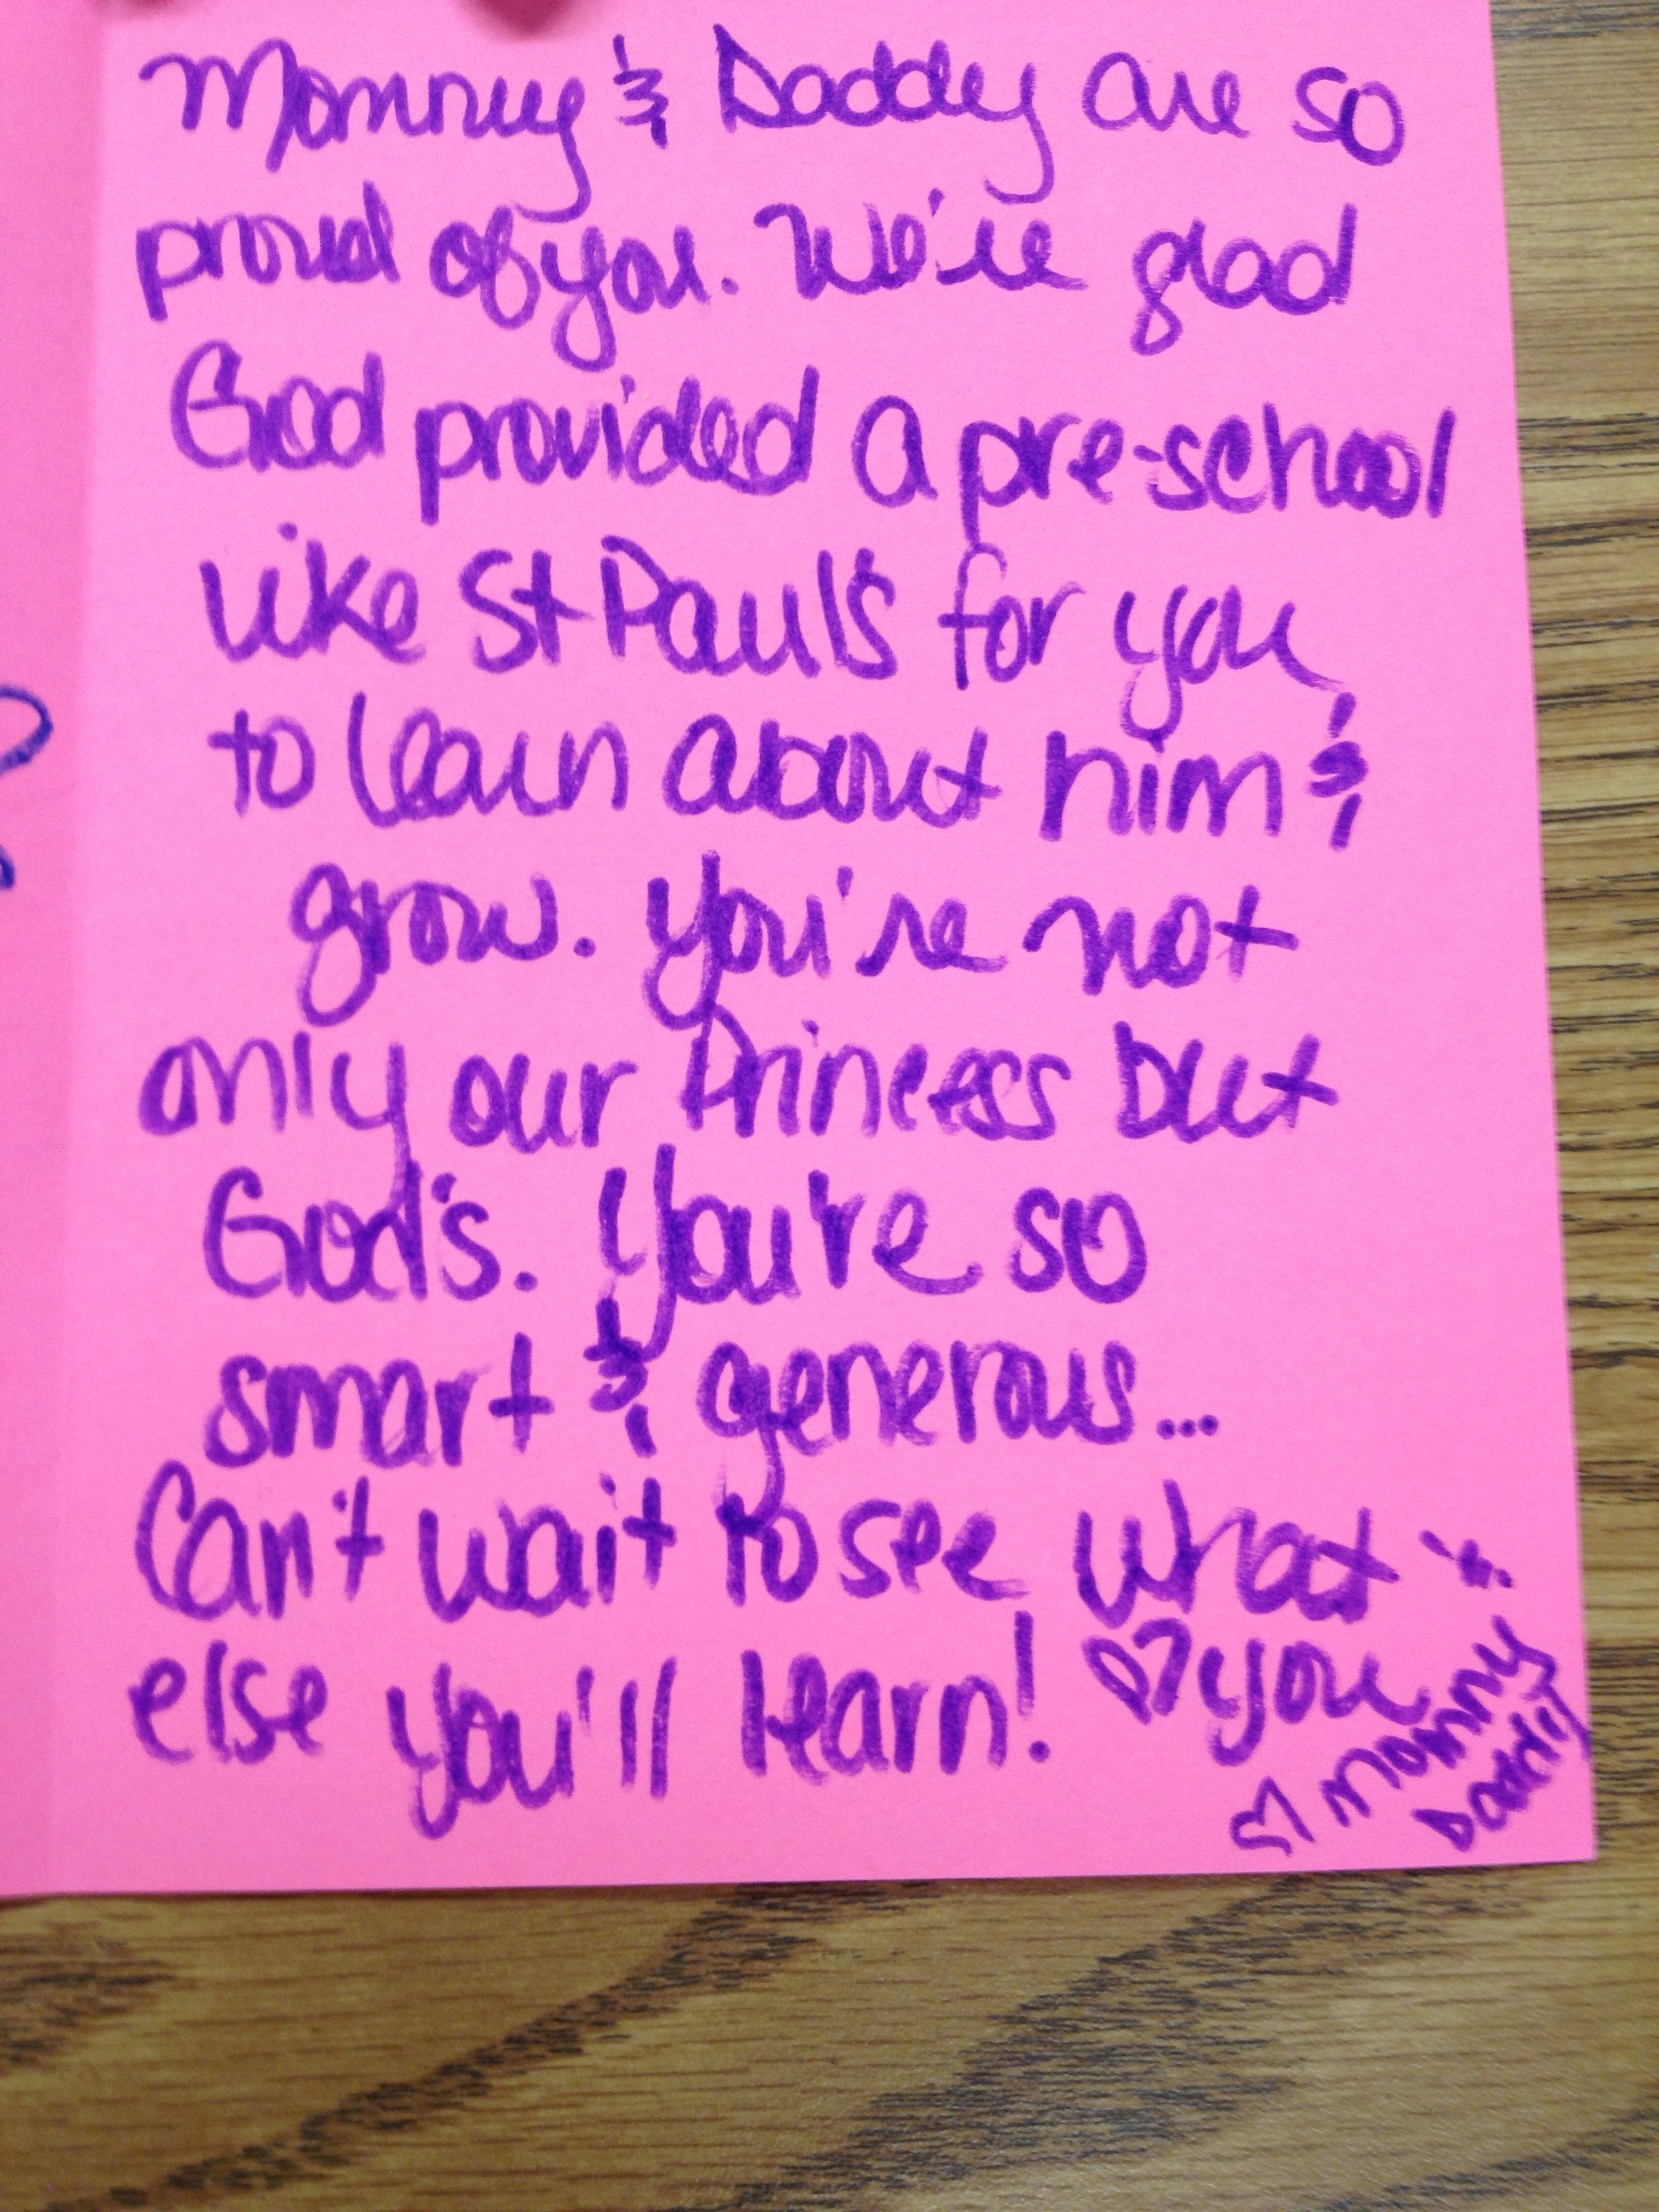 Mommy & Daddy are so
proud of you. We're glad
God provided a pre-school
like St Paul's for you
to learn about him &
grow. You're not
only our Princess but
God's. You're so
smart & generous...
Can't wait to see what
else you'll learn! ♡ you
♡ Mommy &
Daddy